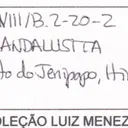 VIII/B.2-20-2
ANDALUSITA
to do Jenipapo, Itin
OLEÇÃO LUIZ MENEZ